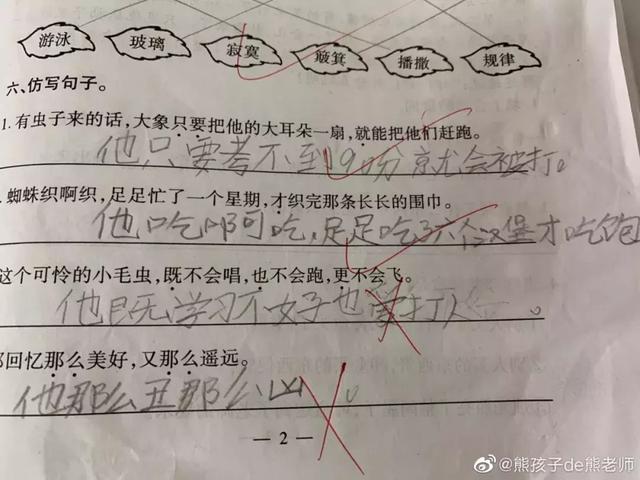 游泳 玻璃 寂寞 簸箕 播撒 规律
六、仿写句子。
1. 有虫子来的话,大象只要把他的大耳朵一扇,就能把他们赶跑。
他只要考不到90份就会被打。
. 蜘蛛织啊织,足足忙了一个星期,才织完那条长长的围巾。
他吃啊吃,足足吃了六个汉堡才吃饱
这个可怜的小毛虫,既不会唱,也不会跑,更不会飞。
他既学习不好也 打人。
回忆那么美好,又那么遥远。
他那么丑那么凶。
— 2 —
@熊孩子de熊老师